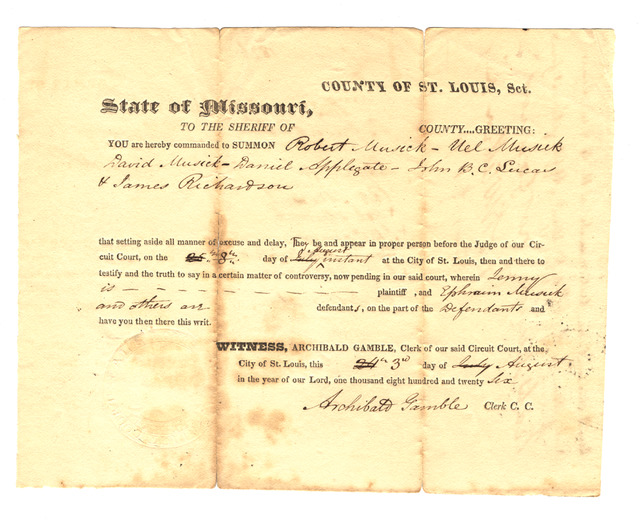 COUNTY OF ST. LOUIS, Sct.
State of Missouri,
TO THE SHERIFF OF COUNTY....GREETING:
YOU are hereby commanded to SUMMON Robert Musick - Uel Musick
David Musick - Daniel Applegate - John B. C. Lucas
& James Richardson
that setting aside all manner of excuse and delay, They be and appear in proper person before the Judge of our Cir-
August
cuit Court, on the 8th day of July instant at the City of St. Louis, then and there to
testify and the truth to say in a certain matter of controversy, now pending in our said court, wherein Jenny
is - - - - - - - - plaintiff , and Ephraim Musick
and others are defendants, on the part of the Defendants and
have you then there this writ.
WITNESS, ARCHIBALD GAMBLE, Clerk of our said Circuit Court, at the
City of St. Louis, this 24th 3rd day of July August
in the year of our Lord, one thousand eight hundred and twenty Six
Archibald Gamble Clerk C. C.